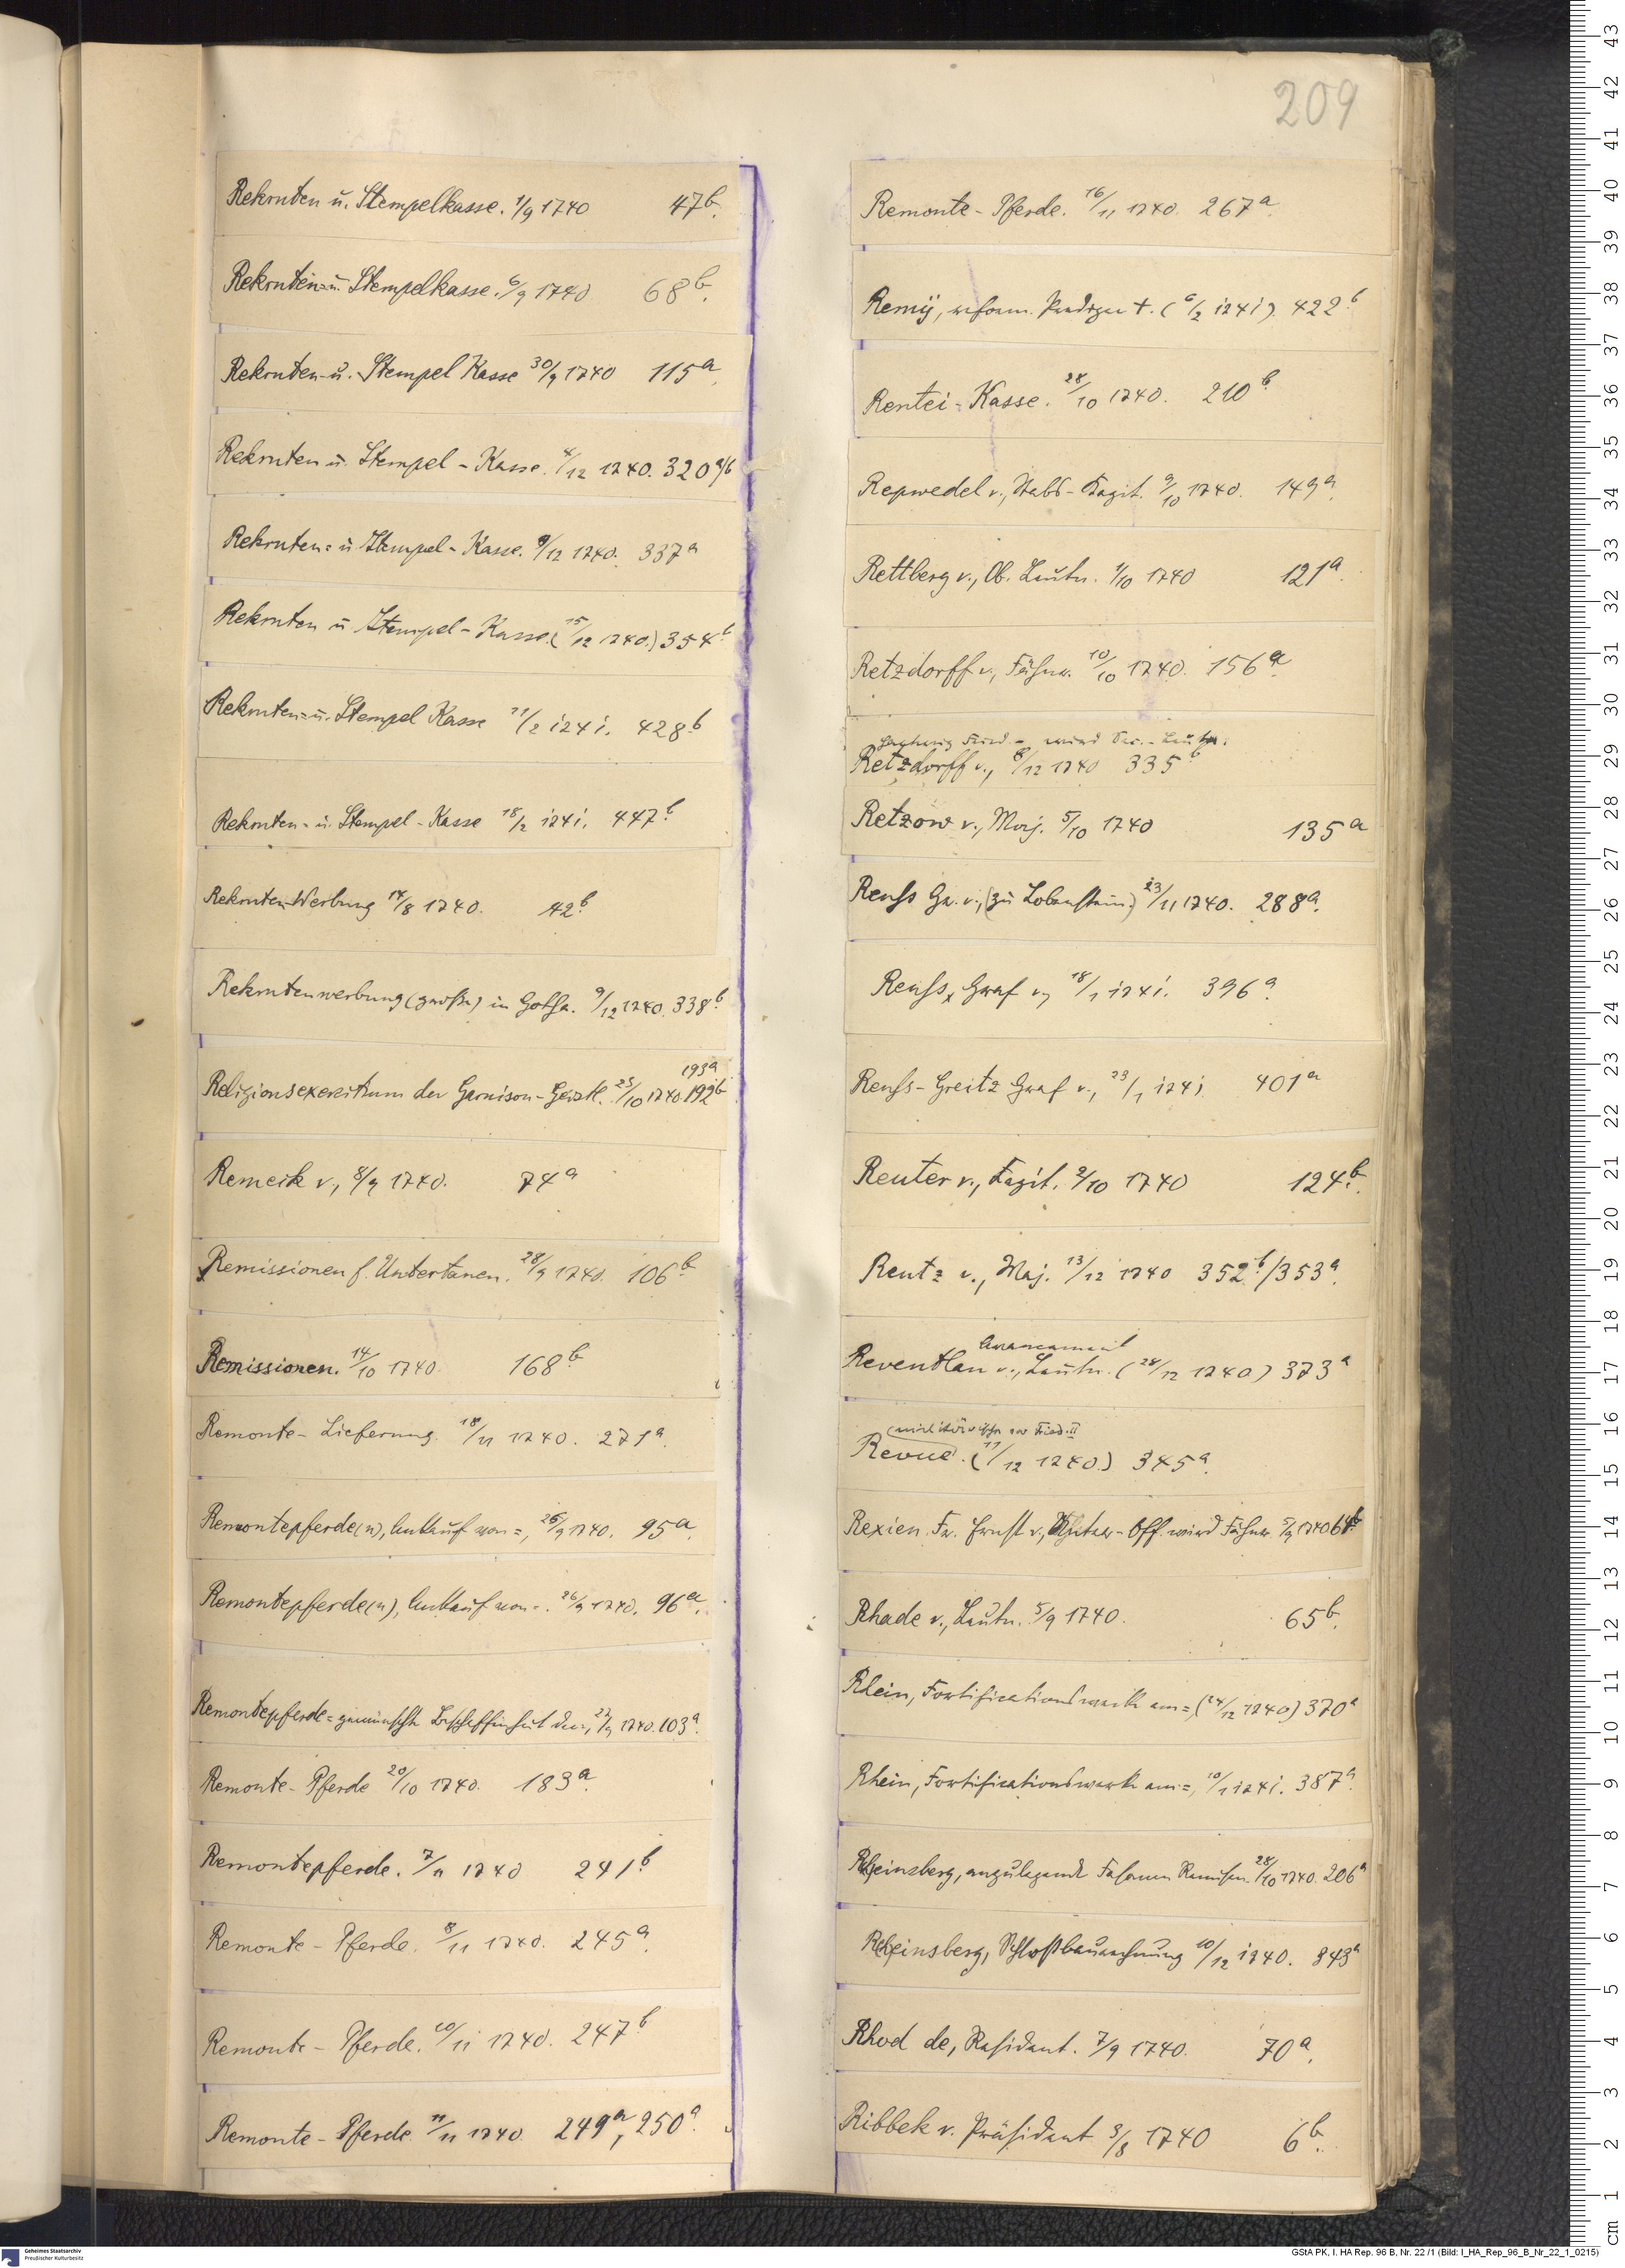 209
Rekruten u. Stempelkasse. 1/9 1740 47b.
Rekruten= u. Stempelkasse. 6/9 1740 68b.
Rekruten- u. Stempel Kasse 30/9 1740 115a.
Rekruten u. Stempel-Kasse. 4/12 1740. 320a/b
Rekruten= u Stempel-Kasse. 9/12 1740. 337a
Rekruten u Stempel-Kasse. (15/12 1740.) 354b.
Rekruten= u. Stempel Kasse 11/2 1741. 428b
Rekruten- u. Stempel-Kasse 18/2 1741. 447b.
Rekruten-Werbung 14/8 1740. 42b.
Rekrutenwerbung (große) in Gotha. 9/12 1740. 338b.
193a
Religionsexercitium der Garnison-Geistl. 23/10 1740. 192b
Remeik v., 8/9 1740. 74a
Remissionen f. Untertanen. 28/9 1740. 106b.
Remissionen. 14/10 1740. 168b
Remonte-Lieferung. 18/11 1740. 271a.
Remontepferde(n), Ankauf von=, 26/9 1740. 95a.
Remontepferde(n), Ankauf von=. 26/9 1740. 96a.
Remontepferde= gewünschte Beschaffenheit der, 27/9 1740. 103a.
Remonte-Pferde 20/10 1740. 183a.
Remontepferde. 7/11 1740 241b
Remonte-Pferde. 8/11 1740. 245a.
Remonte-Pferde. 10/11 1740. 247b
Remonte-Pferde. 11/11 1740. 249a, 250a.
Remonte-Pferde. 16/11 1740. 267a.
Remÿ, reform. Prediger †. (6/2 1741). 422b
Rentei-Kasse. 28/10 1740. 210b.
Repwedel v., Stabs-Kapit. 9/10 1740. 149a.
Rettberg v., Ob. Leutn. 1/10 1740 121a.
Retzdorff v., Fähnr. 10/10 1740. 156a.
Fried.- wird Sec.-Leutn.
Retzdorff v., 8/12 1740 335b
Retzow v., Maj. 5/10 1740 135a
Reuss Gr. v., (zu Lobenstein) 23/11 1740. 288a.
Reuss, Graf v., 18/1 1741. 396a.
Reuss-Greitz Graf v., 23/1 1741 401a
Reuter v., Kapit. 2/10 1740 124b.
Reutz v., Maj. 13/12 1740 352b/353a.
Avancement
Reventlau v., Leutn. (28/12 1740) 373a
(militärische vor Fried. II
Revue. (11/12 1740.) 345a.
Rexien Fr. Ernst v., Unter-Off. wird Fähnr. 5/9 1740 64b
Rhade v., Leutn. 5/9 1740. 65b.
Rhein, Fortificationswerk am=, (24/12 1740) 370a
Rhein, Fortificationswerk am=, 10/1 1741. 387a.
Rheinsberg, anzulegende Fasanen Remisen. 28/10 1740. 206a
Rheinsberg, Schloßbaurechnung 10/12 1740. 343a
Rhod de, Resident. 7/9 1740. 70a.
Ribbek v. Präsident 3/8 1740 6b.
Geheimes Staatsarchiv
Preußischer Kulturbesitz
GStA PK, I. HA Rep. 96 B, Nr. 22 /1 (Bild: I_HA_Rep_96_B_Nr_22_1_0215)